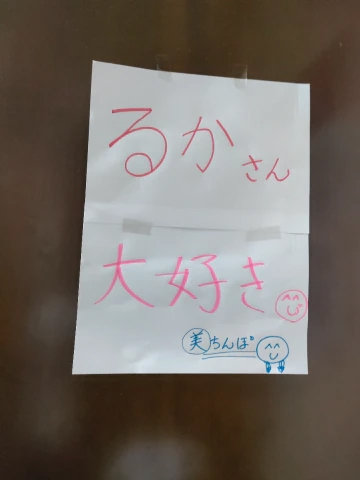 るかさん
大好き
美ちんぽ